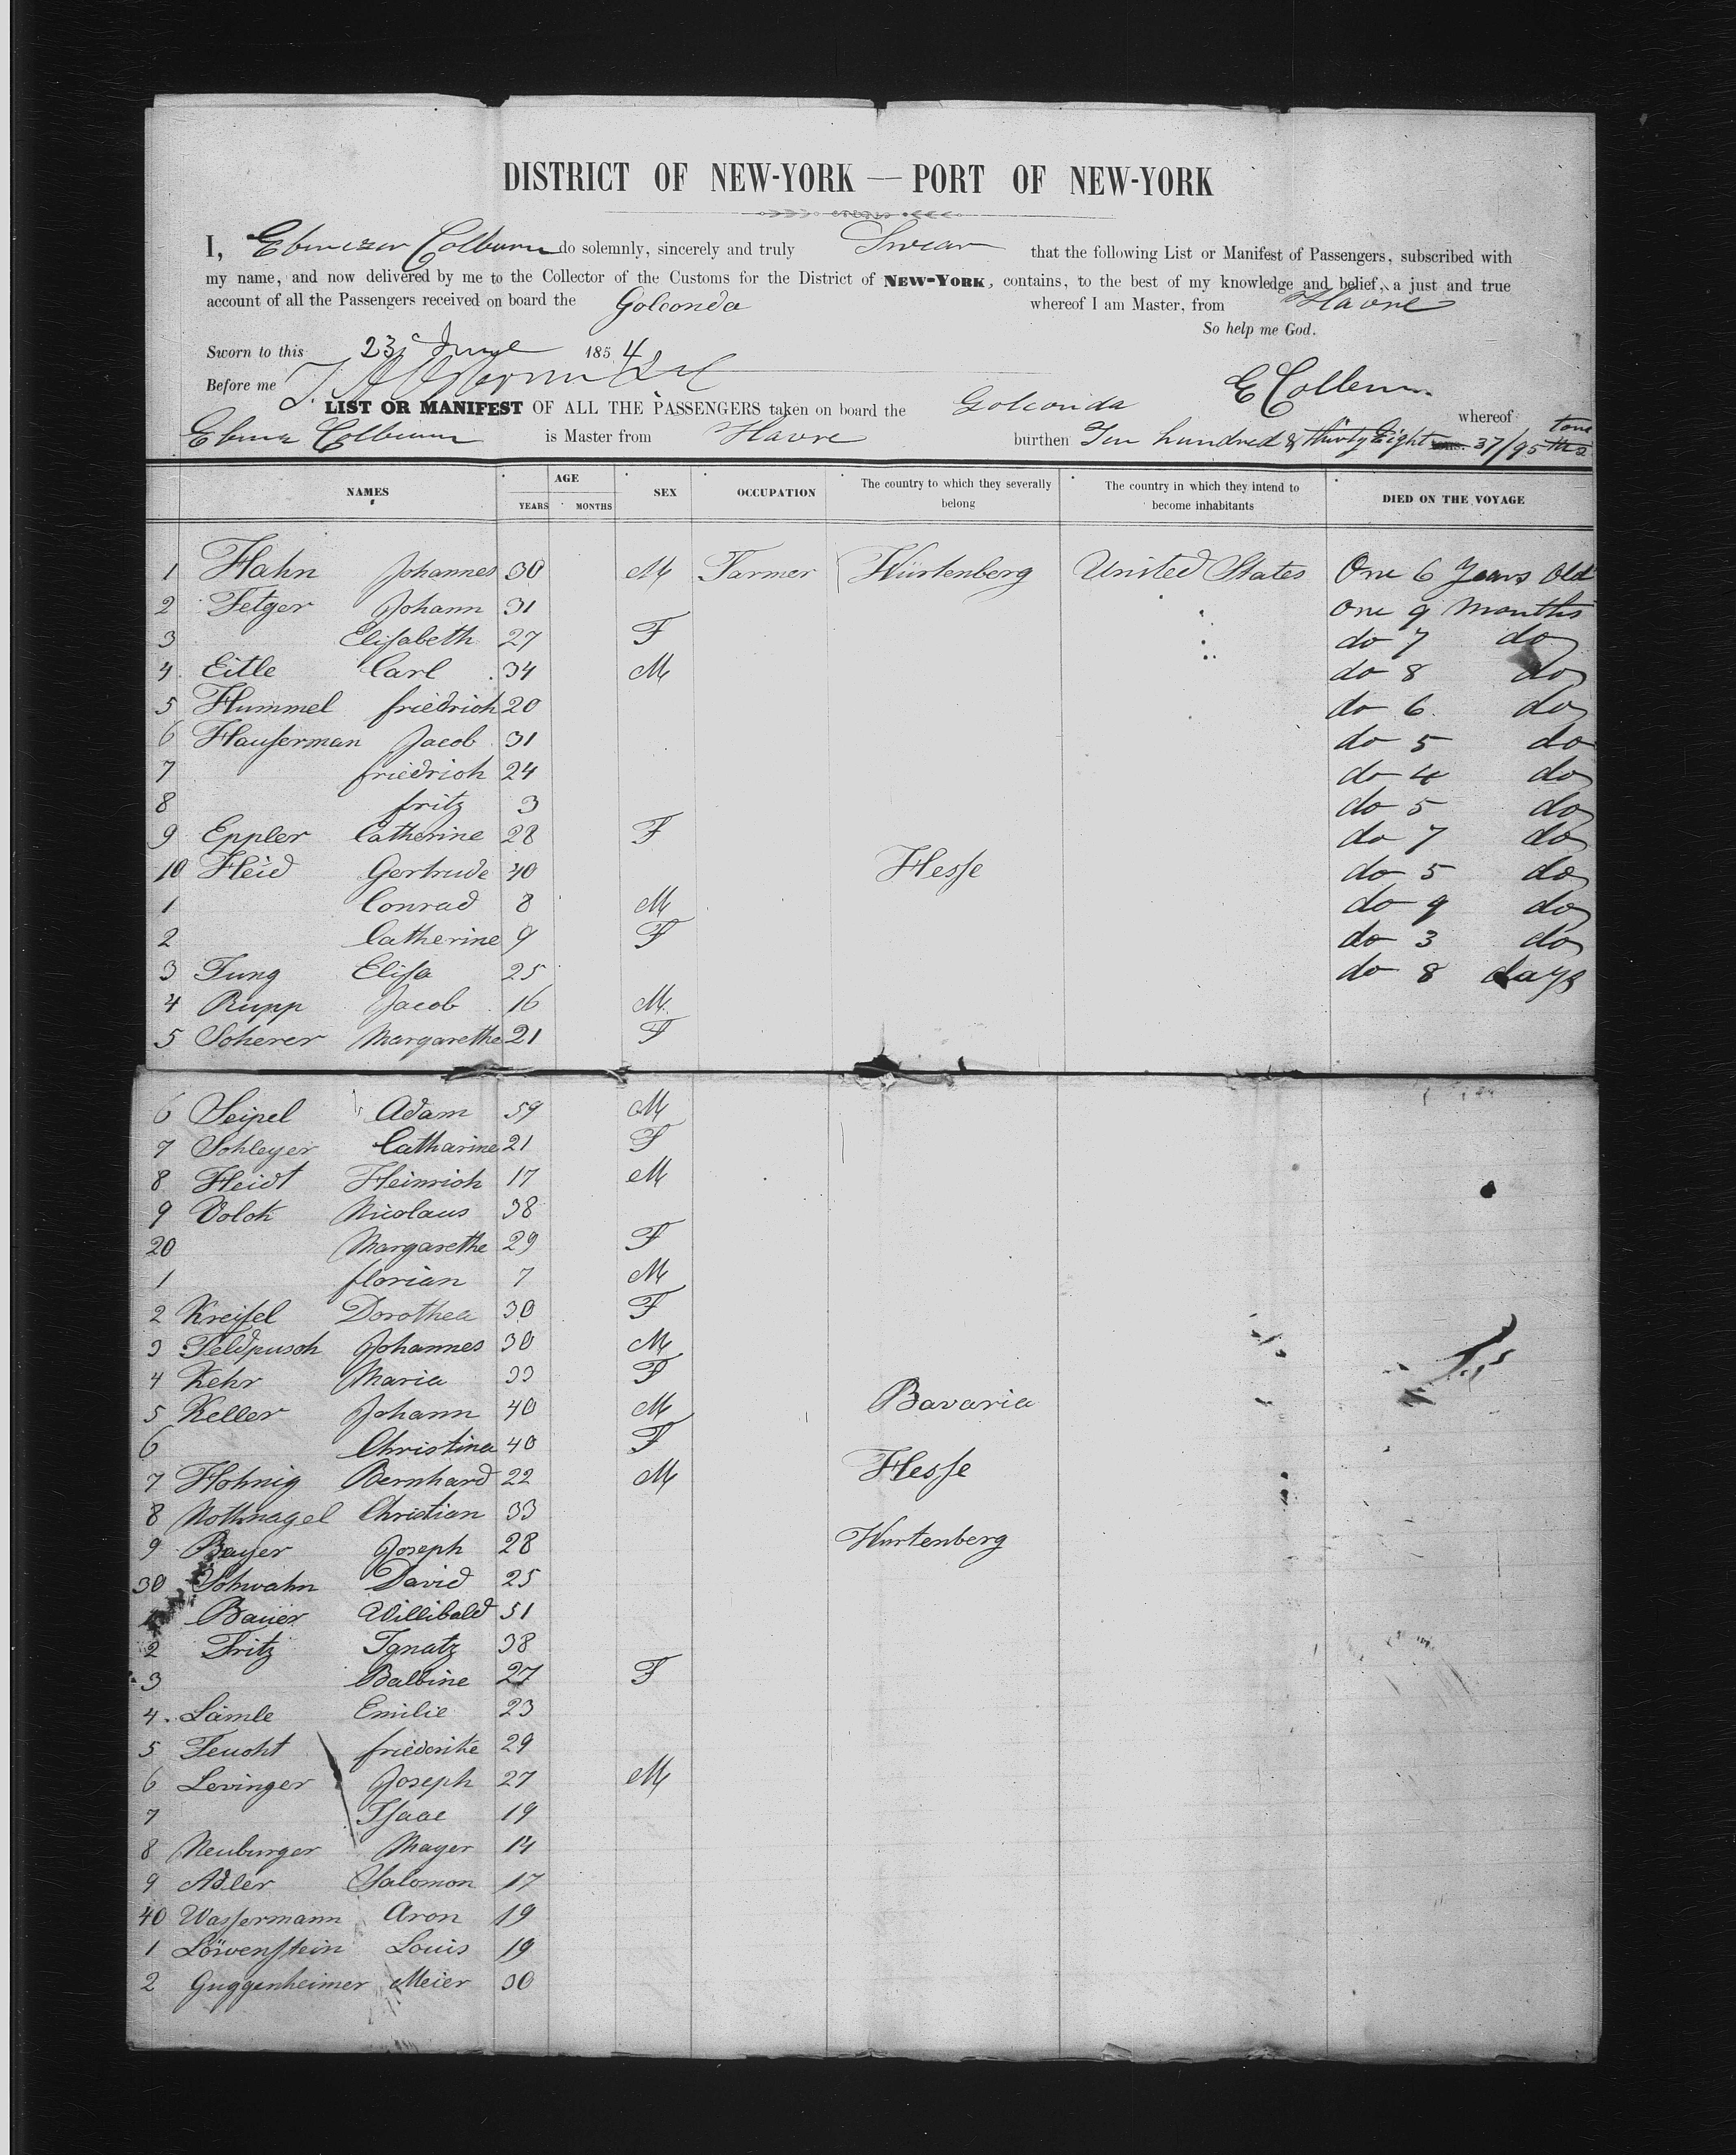 DISTRICT OF NEW-YORK — PORT OF NEW-YORK
I, Ebenezer Colburn do solemnly, sincerely and truly Swear that the following List or Manifest of Passengers, subscribed with
my name, and now delivered by me to the Collector of the Customs for the District of NEW-YORK, contains, to the best of my knowledge and belief, a just and true
account of all the Passengers received on board the Golconda whereof I am Master, from Havre
So help me God.
Sworn to this 23 June 1854
Before me
E Colburn
LIST OR MANIFEST OF ALL THE PASSENGERS taken on board the Golconda whereof
Eben Colburn is Master from Havre burthen Ten hundred & Thirty Eight 37/95 ths tons
NAMES AGE YEARS MONTHS SEX OCCUPATION The country to which they severally belong The country in which they intend to become inhabitants DIED ON THE VOYAGE
1 Hahn Johannes 30 M Farmer Würtenberg United States One 6 Years Old
2 Fetger Johann 31 One 9 Months
3 Elisabeth 27 F do 7 do
4 Eitle Carl 34 M do 8 do
5 Hummel friedrich 20 do 6 do
6 Hauserman Jacob 31 do 5 do
7 friedrich 24 do 4 do
8 fritz 3 do 5 do
9 Eppler Catherine 28 F do 7 do
10 Heid Gertrude 40 Hesse do 5 do
1 Conrad 8 M do 9 do
2 Catherine 9 F do 3 do
3 Jung Elisa 25 do 8 days
4 Rupp Jacob 16 M
5 Scherer Margarethe 21 F
6 Seipel Adam 59 M
7 Schleyer Catharine 21 F
8 Heidt Heinrich 17 M
9 Volck Nicolaus 38
20 Margarethe 29 F
1 florian 7 M
2 Kreisel Dorothea 30 F
3 Feldpusch Johannes 30 M
4 Kehr Maria 33 F
5 Keller Johann 40 M Bavaria
6 Christina 40 F
7 Hohnig Bernhard 22 M Hesse
8 Nothnagel Christian 33
9 Bayer Joseph 28 Wurtenberg
30 Schwahn David 25
1 Bauer Willibald 51
2 Fritz Ignatz 38
3 Balbine 27 F
4 Lämle Emilie 23
5 Feucht friederike 29
6 Levinger Joseph 27 M
7 Isaac 19
8 Neuburger Mayer 14
9 Adler Salomon 17
40 Wassermann Aron 19
1 Löwenstein Louis 19
2 Guggenheimer Meier 30